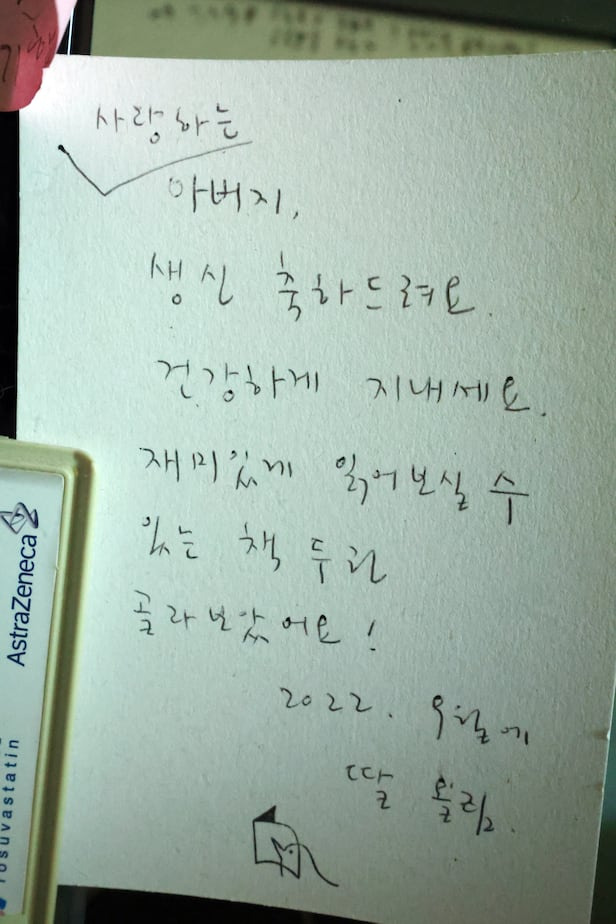 사랑하는
아버지,
생신 축하드려요.
건강하게 지내세요.
재미있게 읽어보실 수
있는 책 두권
골라보았어요!
2022.
딸
AstraZeneca
rosuvastatin